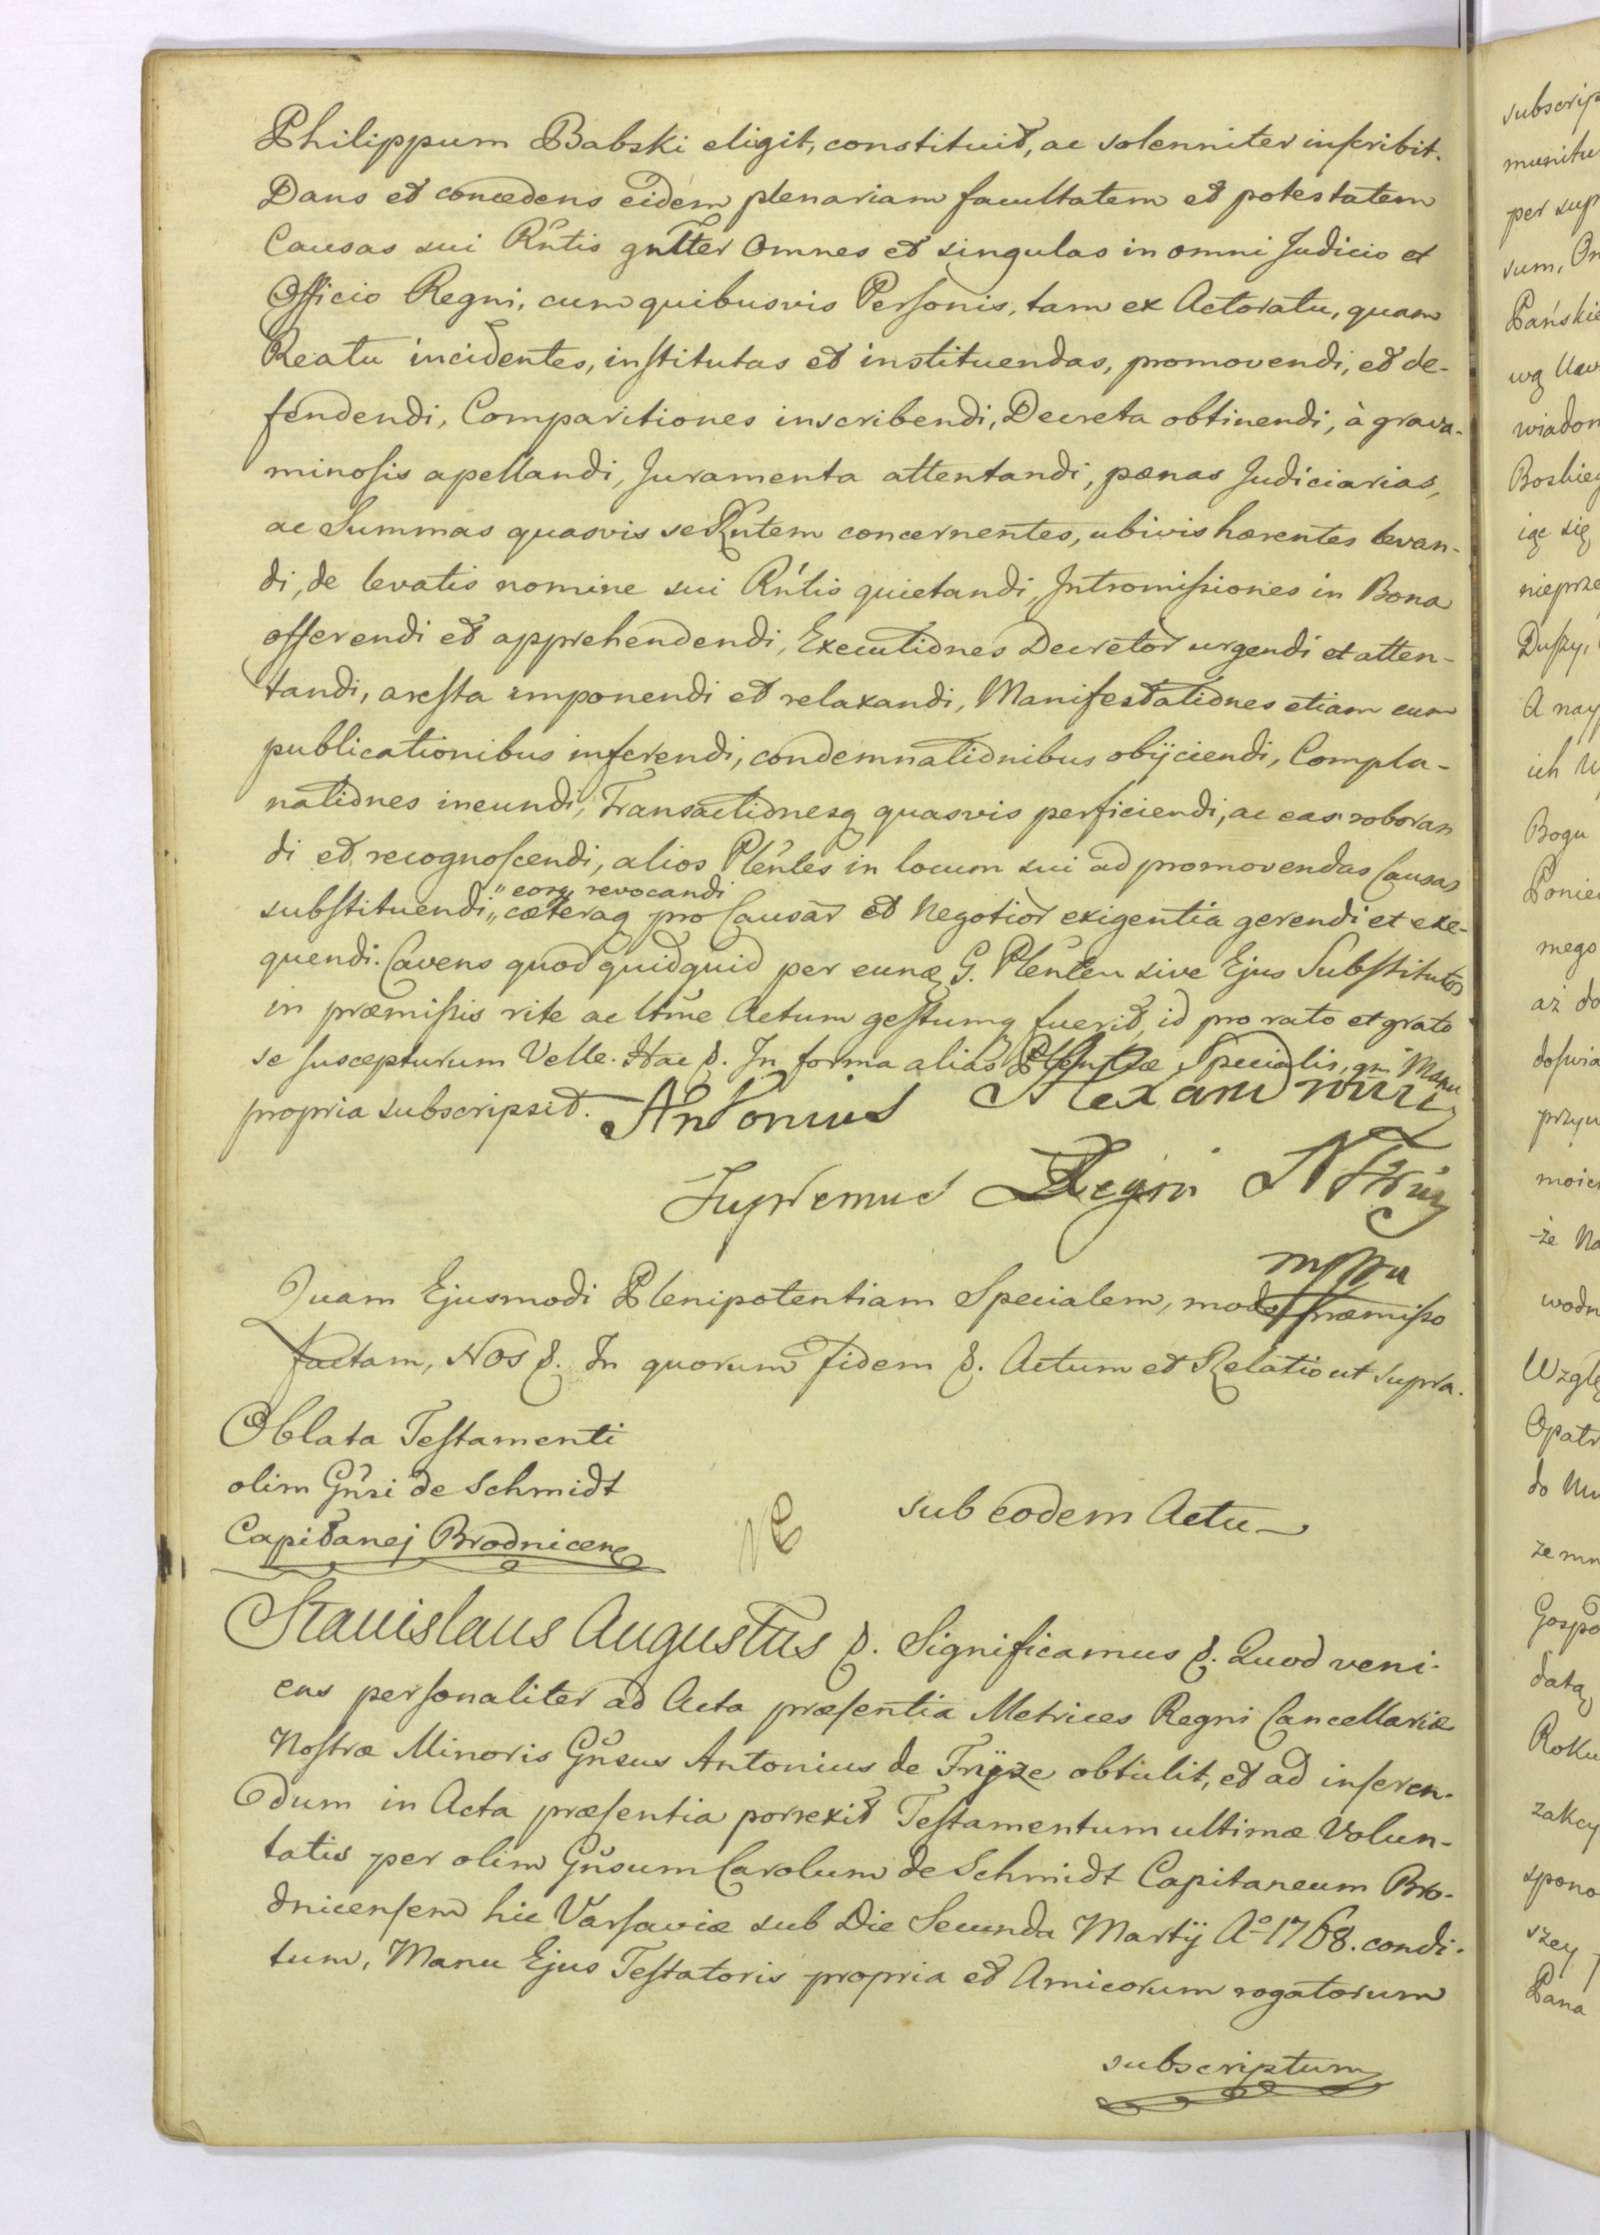 Philippum Babski eligit, constituit, ac solenniter inscribit.
Dans et concedens eidem plenariam facultatem et potestatem
Causas sui Rñtis gñlter Omnes et singulas in omni Judicio et
Officio Regni, cum quibusvis Personis, tam ex Actoratu, quam
Reatu incidentes, institutas et instituendas, promovendi, et de-
fendendi, Comparitiones inscribendi, Decreta obtinendi, à grava-
minosis apellandi, Juramenta attentandi, pænas Judiciarias,
ac Summas quasvis se Rñtem concernentes, ubivis hærentes levan-
di, de levatis nomine sui Rñtis quietandi, Intromissiones in Bona
offerendi et apprehendendi, Executiones Decretor urgendi et atten-
tandi, aresta imponendi et relaxandi, Manifestationes etiam cum
publicationibus inferendi, condemnationibus obijciendi, Compla-
nationes ineundi, Transactionesq quasvis perficiendi, ac eas roboran
di et recognoscendi, alios Plentes in locum sui ad promovendas Causas
substituendi, eosq revocandi cæteraq pro Causar et Negotior exigentia gerendi et exe-
quendi. Cavens quod quidquid per eunq G. Plenten sive Ejus Substitutos
in præmissis rite ac ltme Actum gestumq fuerit, id pro rato et grato
se suscepturum Velle. Hac &. In forma alias Specialis, Manu
propria subscripsit. Antonius Alexandrowicz
Supremus Regni
mppa
Quam Ejusmodi Plenipotentiam Specialem, modo præmisso
factam, Nos &. In quorum fidem &. Actum et Relatio ut supra.
Oblata Testamenti
olim Gñsi de Schmidt
Capitanej Brodnicen
sub eodem Actu
Stanislaus Augustus &. Significamus &. Quod veni-
ens personaliter ad Acta præsentia Metrices Regni Cancellariæ
Nostræ Minoris Gñsus Antonius de Fryze obtulit, et ad inseren-
dum in Acta præsentia porrexit Testamentum ultimæ Volun-
tatis per olim Gñsum Carolum de Schmidt Capitaneum Bro-
dnicensem hic Varsaviæ sub Die Secunda Martij Aº 1768. condi-
tum, Manu Ejus Testatoris propria et Amicorum rogatorum
subscriptum